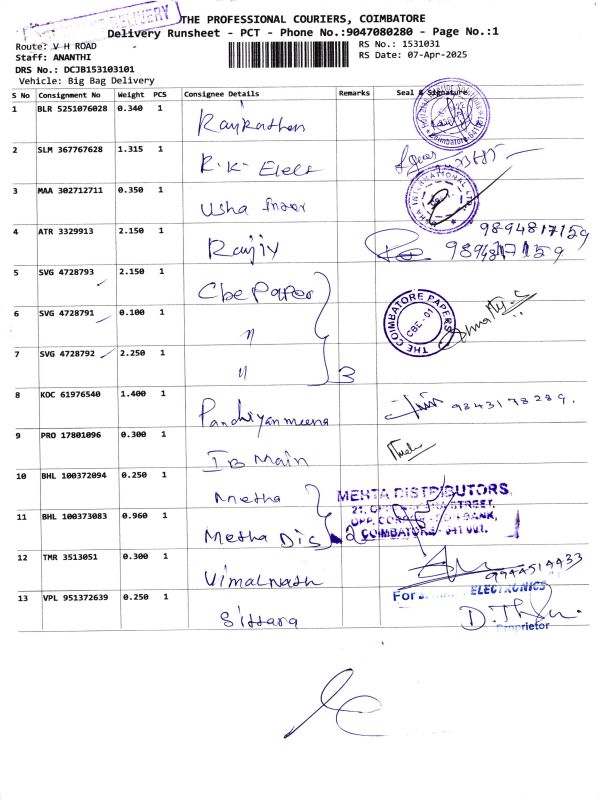 DELIVERY
THE PROFESSIONAL COURIERS, COIMBATORE
Delivery Runsheet - PCT - Phone No.:9047080280 - Page No.:1
Route: V H ROAD
RS No.: 1531031
Staff: ANANTHI
RS Date: 07-Apr-2025
DRS No.: DCJB153103101
Vehicle: Big Bag Delivery
S No Consignment No Weight PCS Consignee Details Remarks Seal & Signature
1 BLR 5251076028 0.340 1
2 SLM 367767628 1.315 1 R.K. Elect
3 MAA 302712711 0.350 1 Usha
4 ATR 3329913 2.150 1 Ranjiv 9894817159
9894817159
5 SVG 4728793 2.150 1 Cbe Paper
6 SVG 4728791 0.100 1 "
THE COIMBATORE PAPERS
CBE-01
7 SVG 4728792 2.250 1 " 3
8 KOC 61976540 1.400 1 Pandiyan meena 9843178289.
9 PRO 17801096 0.300 1 IB Main
10 BHL 100372094 0.250 1 Metha
MEHTA DISTRIBUTORS,
11 BHL 100373083 0.960 1 Metha Dis 2
COIMBATORE - 641 001.
12 TMR 3513051 0.300 1 Vimalnath 9944514433
For ELECTRONICS
13 VPL 951372639 0.250 1 Sittara
Proprietor